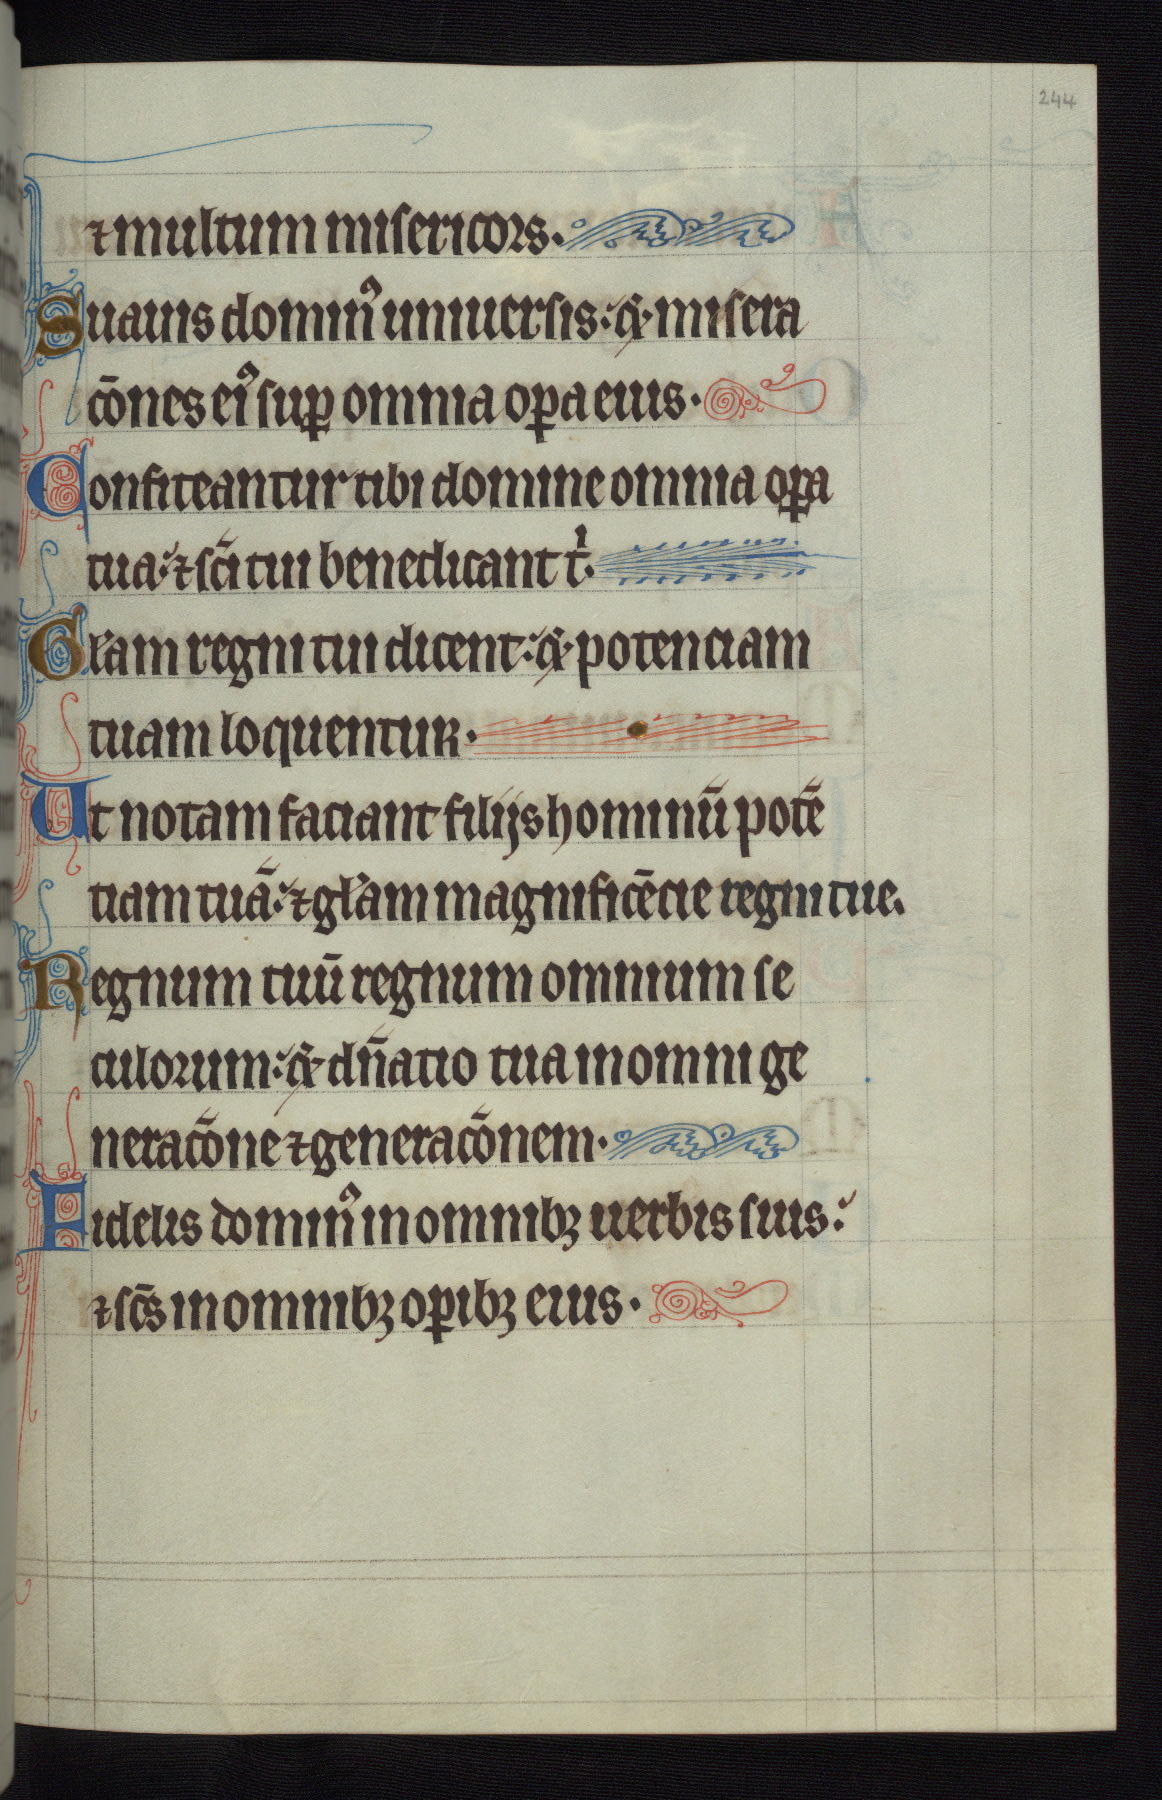 244
⁊ multum misericors.
Suauis dominꝰ uniuersis: ⁊ misera
cōnes eiꝰ sup omnia oꝑa eius.
Confiteantur tibi domine omnia oꝑa
tua: ⁊ sc̄i tui benedicant t̍.
Gl̄am regni tui dicent: ⁊ potenciam
tuam loquentur.
Ut notam faciant filijs hominū potē
tiam tuā: ⁊ gl̄am magnificēcie regni tue.
Regnum tuū regnum omnium se
culorum: ⁊ dn̄atio tua in omni ge
neracōne ⁊ generacōnem.
Fidelis dominꝰ in omnibꝫ uerbis suis:
⁊ sc̄s in omnibꝫ oꝑibꝫ eius.